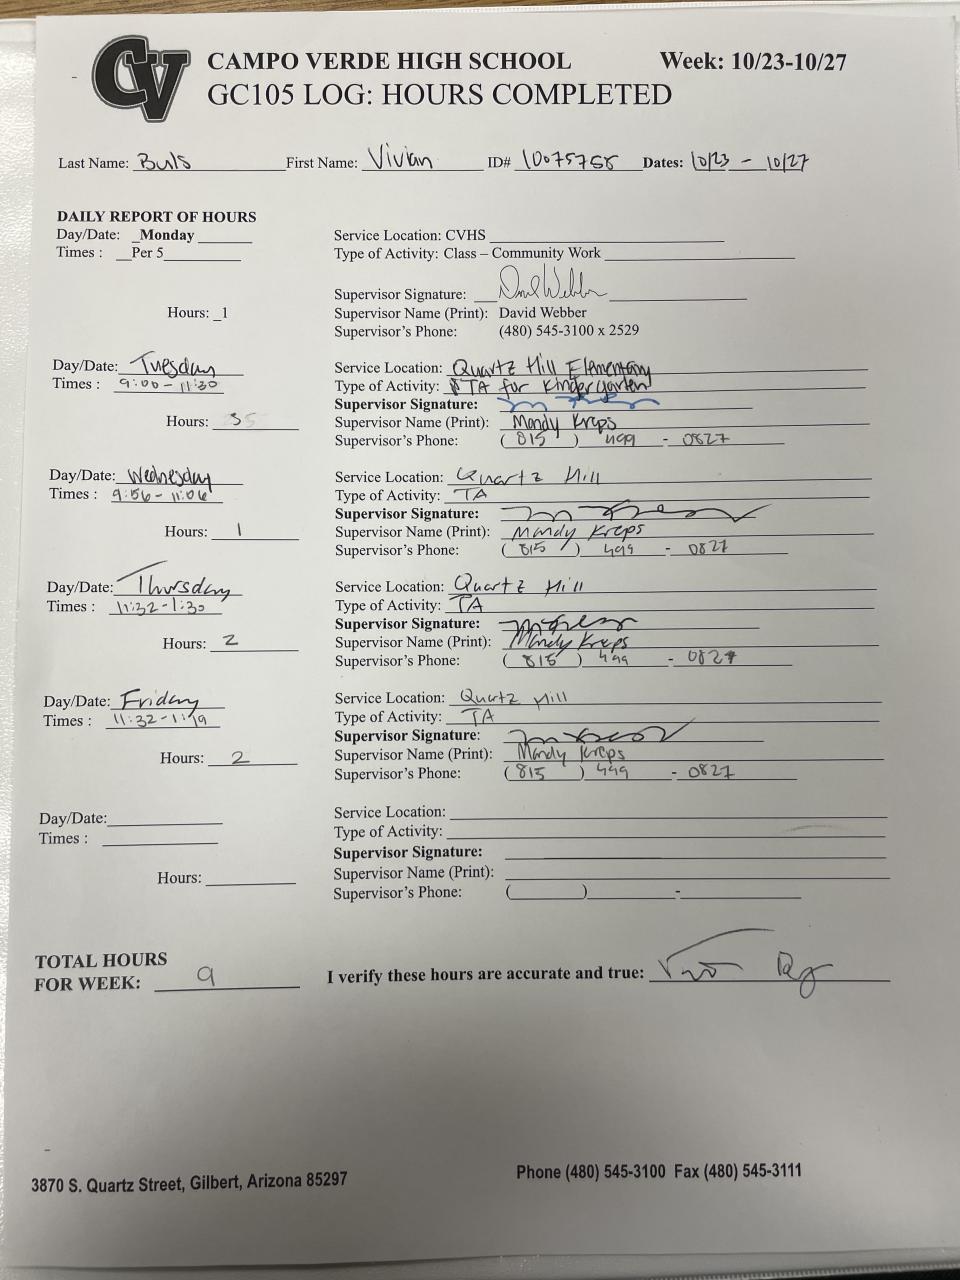 CV
CAMPO VERDE HIGH SCHOOL Week: 10/23-10/27
GC105 LOG: HOURS COMPLETED
Last Name: Buls First Name: Vivian ID# 10075758 Dates: 10/23 - 10/27
DAILY REPORT OF HOURS
Day/Date: Monday Service Location: CVHS
Times : Per 5 Type of Activity: Class – Community Work
Supervisor Signature:
Hours: 1 Supervisor Name (Print): David Webber
Supervisor's Phone: (480) 545-3100 x 2529
Day/Date: Tuesday Service Location: Quartz Hill Elementary
Times : 9:00 - 11:30 Type of Activity: TA for Kindergarten
Supervisor Signature:
Hours: Supervisor Name (Print): Mandy Kreps
Supervisor's Phone: (815) 499 - 0827
Day/Date: Wednesday Service Location: Quartz Hill
Times : 9:56 - 11:06 Type of Activity: TA
Supervisor Signature:
Hours: 1 Supervisor Name (Print): Mandy Kreps
Supervisor's Phone: (815) 499 - 0827
Day/Date: Thursday Service Location: Quartz Hill
Times : 11:32 - 1:30 Type of Activity: TA
Supervisor Signature:
Hours: 2 Supervisor Name (Print): Mandy Kreps
Supervisor's Phone: (815) 499 - 0827
Day/Date: Friday Service Location: Quartz Hill
Times : 11:32 - 1:19 Type of Activity: TA
Supervisor Signature:
Hours: 2 Supervisor Name (Print): Mandy Kreps
Supervisor's Phone: (815) 499 - 0827
Day/Date: Service Location:
Times : Type of Activity:
Supervisor Signature:
Hours: Supervisor Name (Print):
Supervisor's Phone: ( ) -
TOTAL HOURS
FOR WEEK: 9 I verify these hours are accurate and true:
3870 S. Quartz Street, Gilbert, Arizona 85297 Phone (480) 545-3100 Fax (480) 545-3111